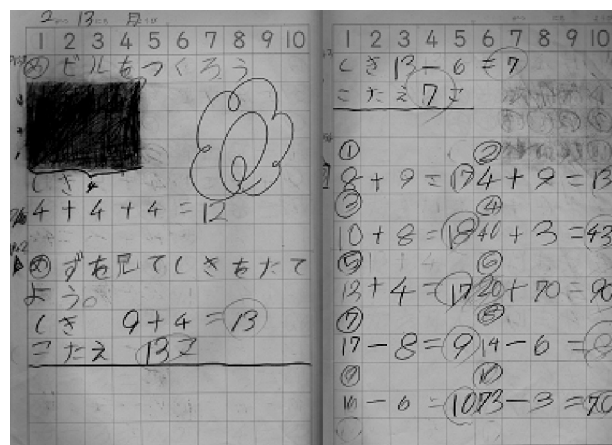 2 13 月
1 2 3 4 5 6 7 8 9 10
め ビルをつくろう
しき
4+4+4=12
め ずを見てしきをたて
よう。
しき 9+4=13
こたえ 13こ
1 2 3 4 5 6 7 8 9 10
しき 13-6=7
こたえ 7こ
① ②
8+9=17 4+9=13
③ ④
10+8=18 40+3=43
⑤ ⑥
13+4=17 20+70=90
⑦ ⑧
17-8=9 14-6=8
⑨ ⑩
16-6=10 73-3=70